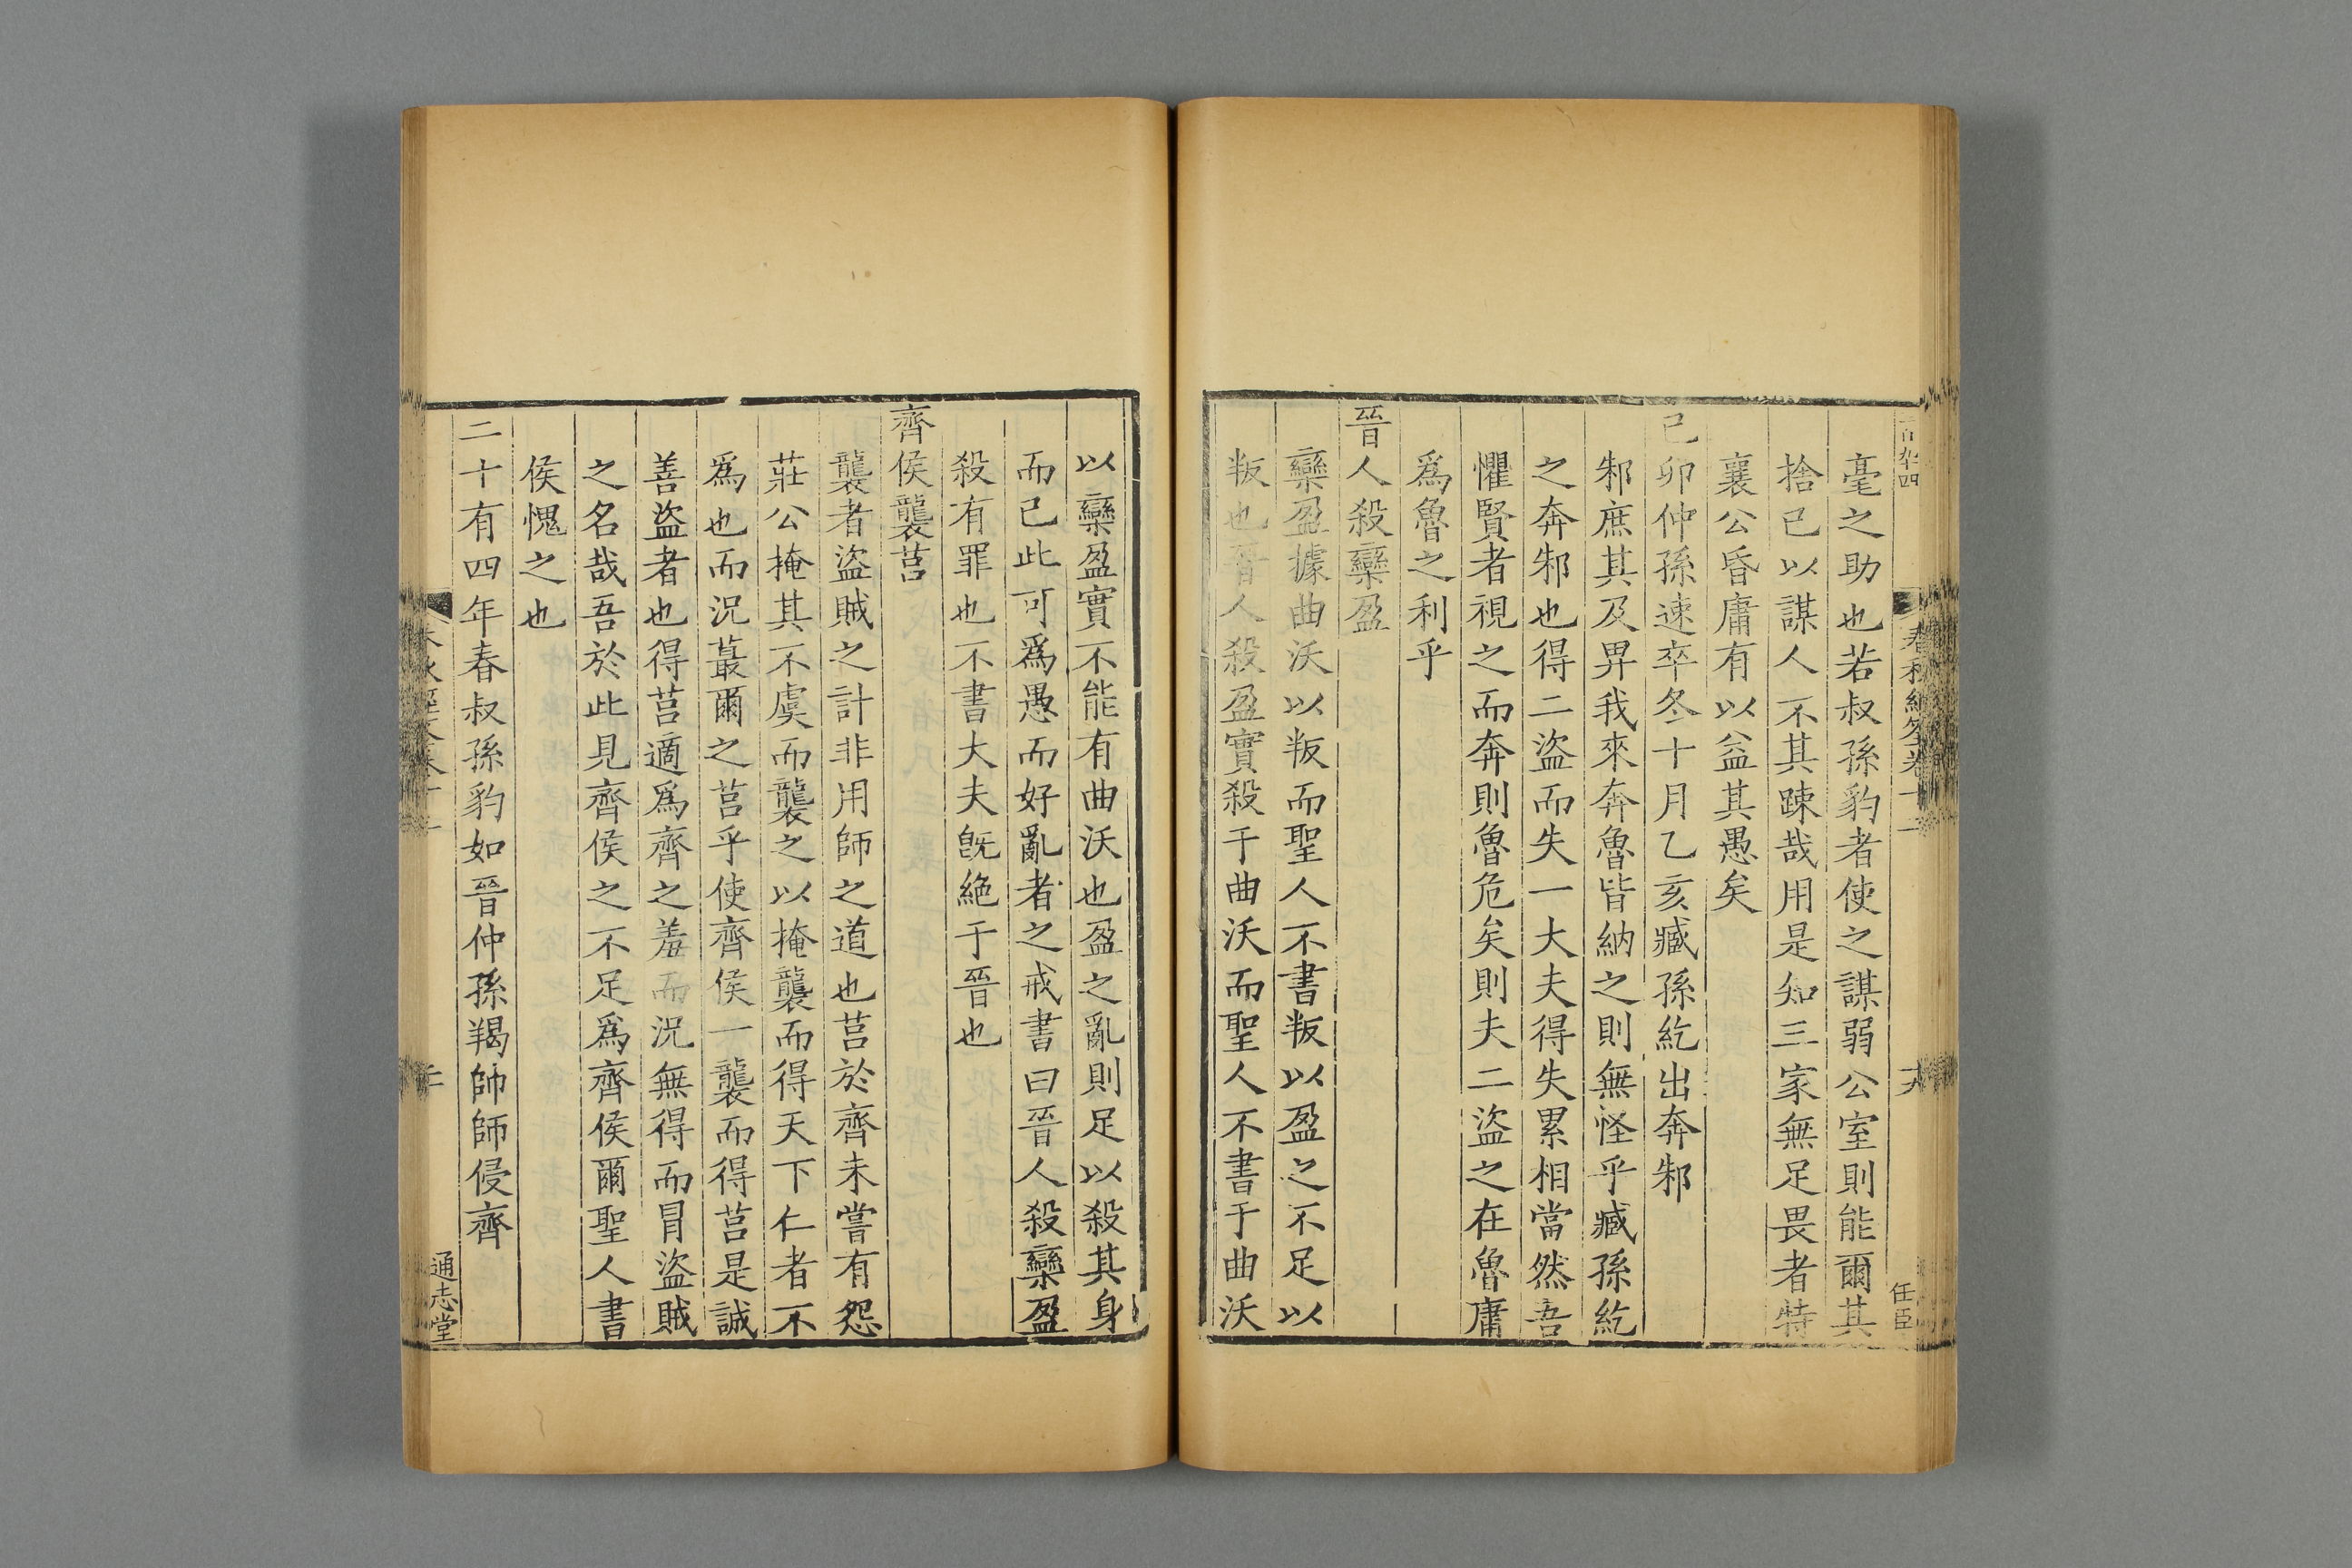 毫之助也若叔孫豹者使之謀弱公室則能爾其
捨己以謀人不其踈哉用是知三家無足畏者特
襄公昏庸有以益其愚矣
己卯仲孫速卒冬十月乙亥臧孫紇出奔邾
邾庶其及畀我來奔魯皆納之則無怪乎臧孫紇
之奔邾也得二盜而失一大夫得失累相當然吾
懼賢者視之而奔則魯危矣則夫二盜之在魯庸
爲魯之利乎
晉人殺欒盈
欒盈據曲沃以叛而聖人不書叛以盈之不足以
叛也晉人殺盈實殺于曲沃而聖人不書于曲沃
以欒盈實不能有曲沃也盈之亂則足以殺其身
而已此可爲愚而好亂者之戒書曰晉人殺欒盈
殺有罪也不書大夫旣絶于晉也
齊侯襲莒
襲者盜賊之計非用師之道也莒於齊未嘗有怨
莊公掩其不虞而襲之以掩襲而得天下仁者不
爲也而況蕞爾之莒乎使齊侯一襲而得莒是誠
善盜者也得莒適爲齊之羞而況無得而冒盜賊
之名哉吾於此見齊侯之不足爲齊侯爾聖人書
侯愧之也
二十有四年春叔孫豹如晉仲孫羯帥師侵齊
通志堂